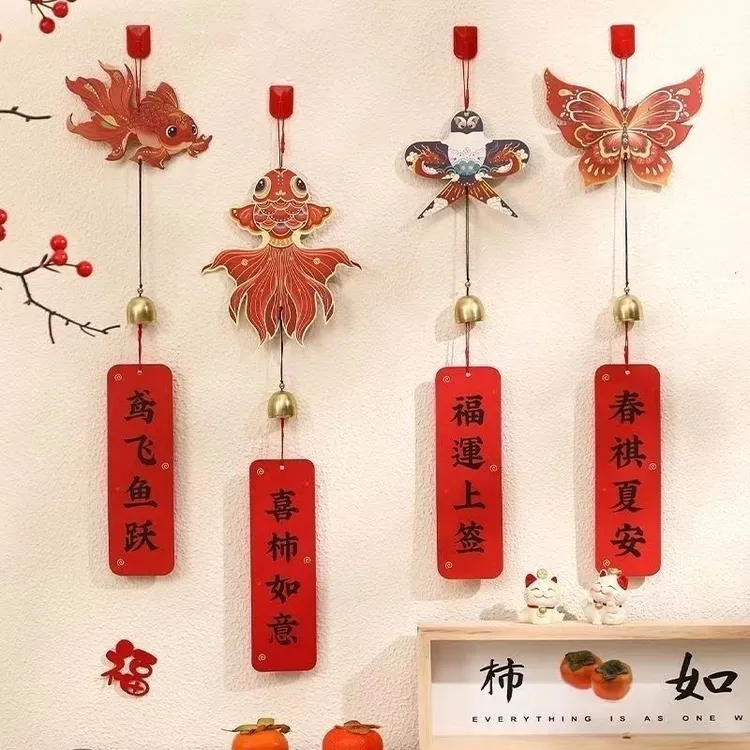 鸢飞鱼跃
喜柿如意
福運上签
春祺夏安
福
柿 如
EVERYTHING IS AS ONE W